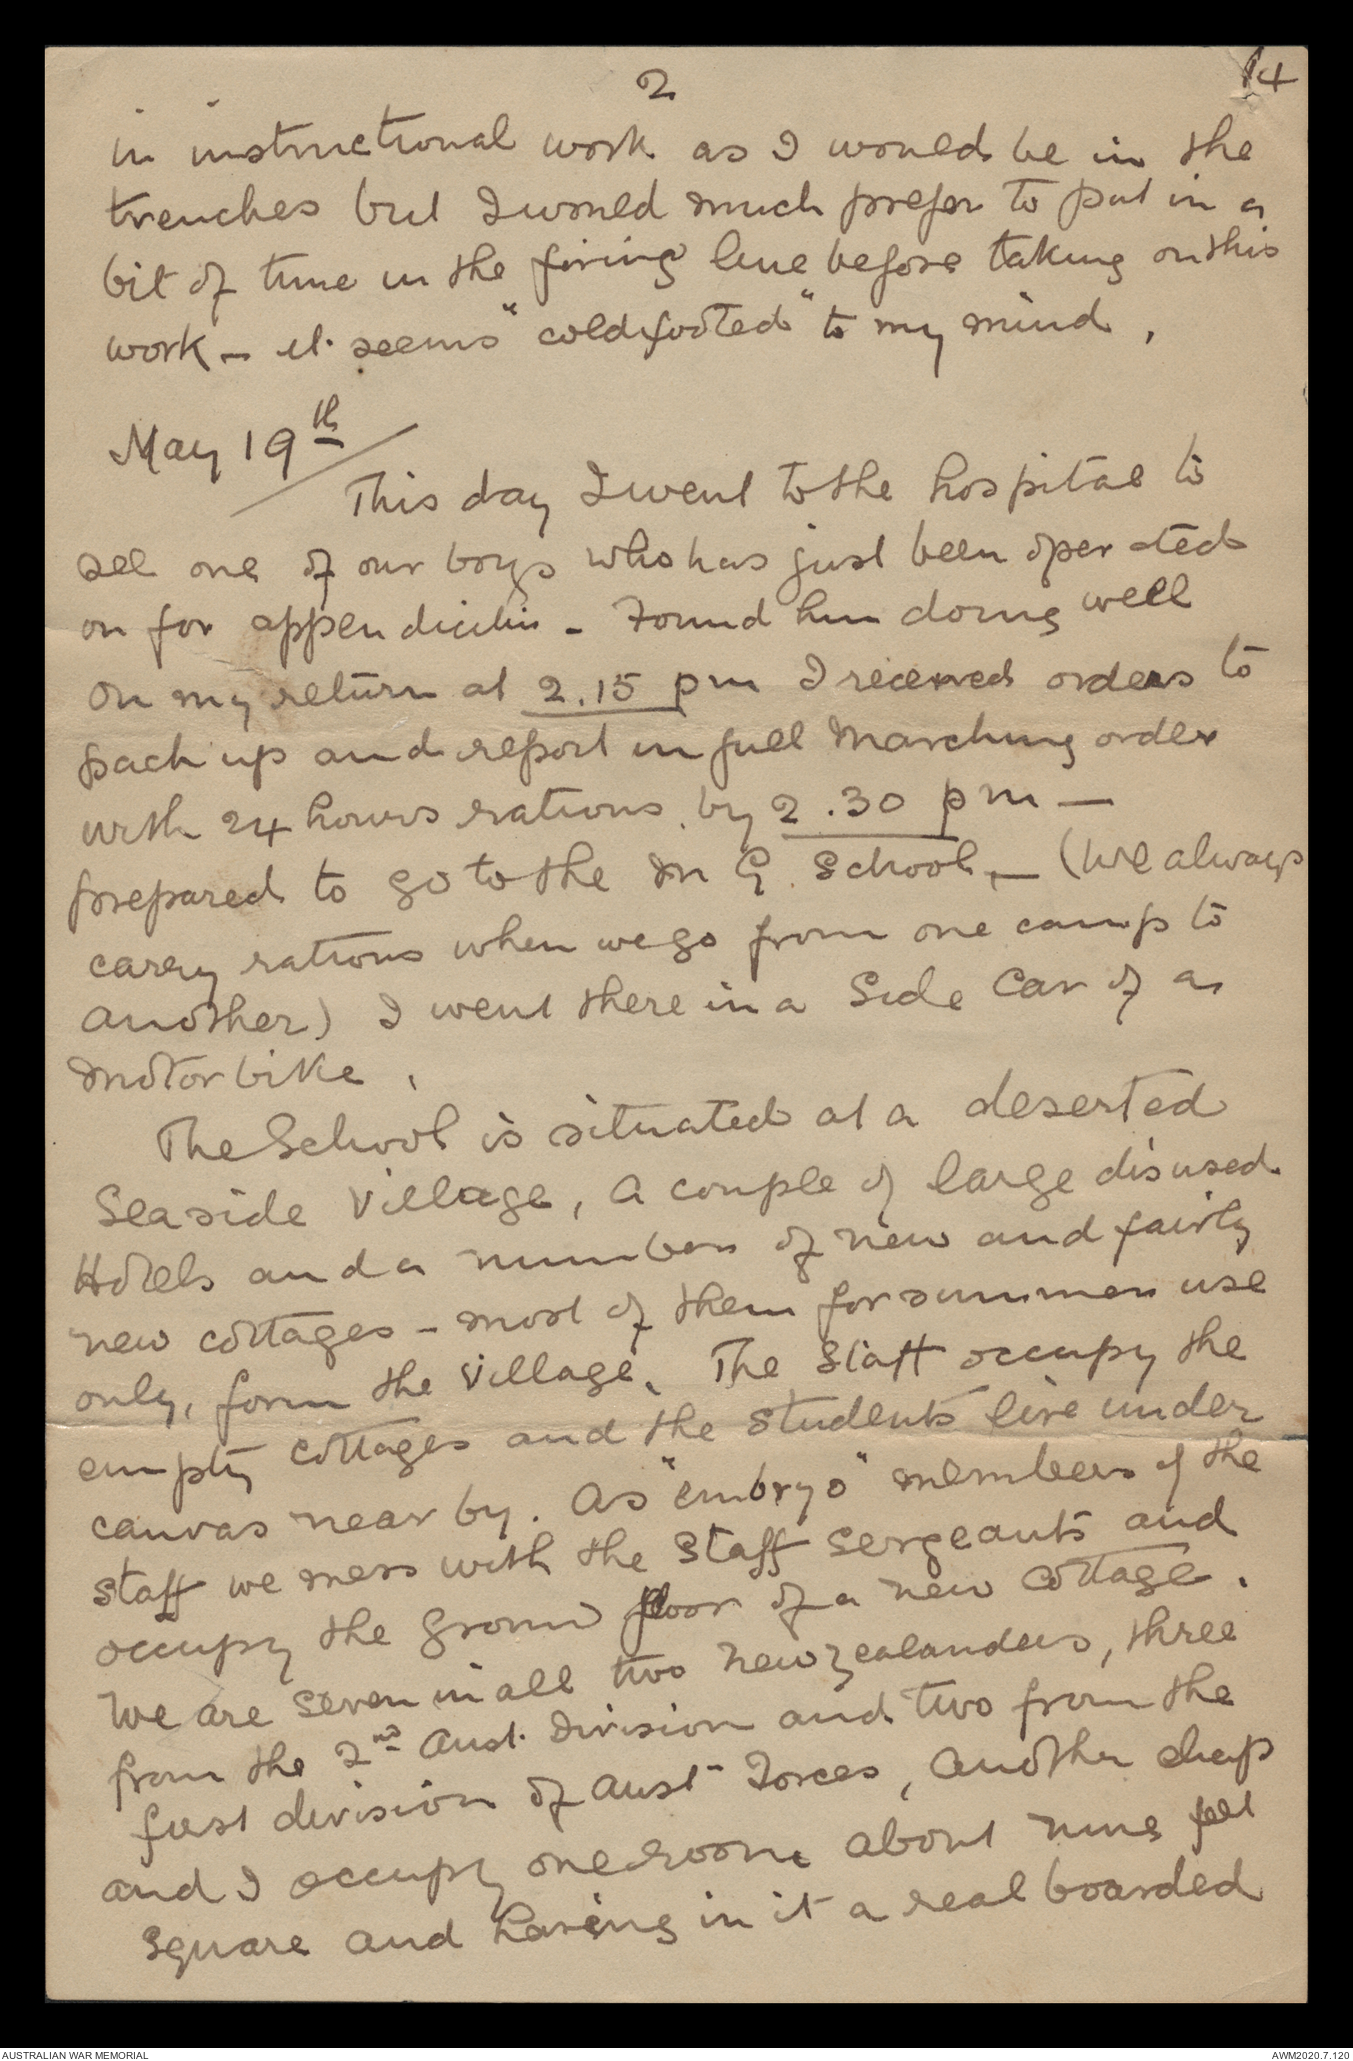 2
14
in instructional work as I would be in the
trenches but I would much prefer to put in a
bit of time in the firing line before taking on this
work - it seems "coldfooted" to my mind.
May 19th
This day I went to the hospital to
see one of our boys who has just been operated
on for appendicitis - Found him doing well
On my return at 2.15 pm I received orders to
pack up and report in full marching order
with 24 hours rations by 2.30 pm —
prepared to go to the M G. School, — (We always
carry rations when we go from one camp to
another) I went there in a Side Car of a
motor bike.
The School is situated at a deserted
Seaside Village, a couple of large disused
Hotels and a number of new and fairly
new cottages - most of them for summer use
only, form the village. The Staff occupy the
empty cottages and the students live under
canvas near by. As "embryo" members of the
staff we mess with the Staff Sergeants and
occupy the ground floor of a new cottage.
We are seven in all two New Zealanders, three
from the 2nd Aust. Division and two from the
first division of Aust Forces, another chap
and I occupy one room about nine feet
square and having in it a real boarded
AUSTRALIAN WAR MEMORIAL
AWM2020.7.120